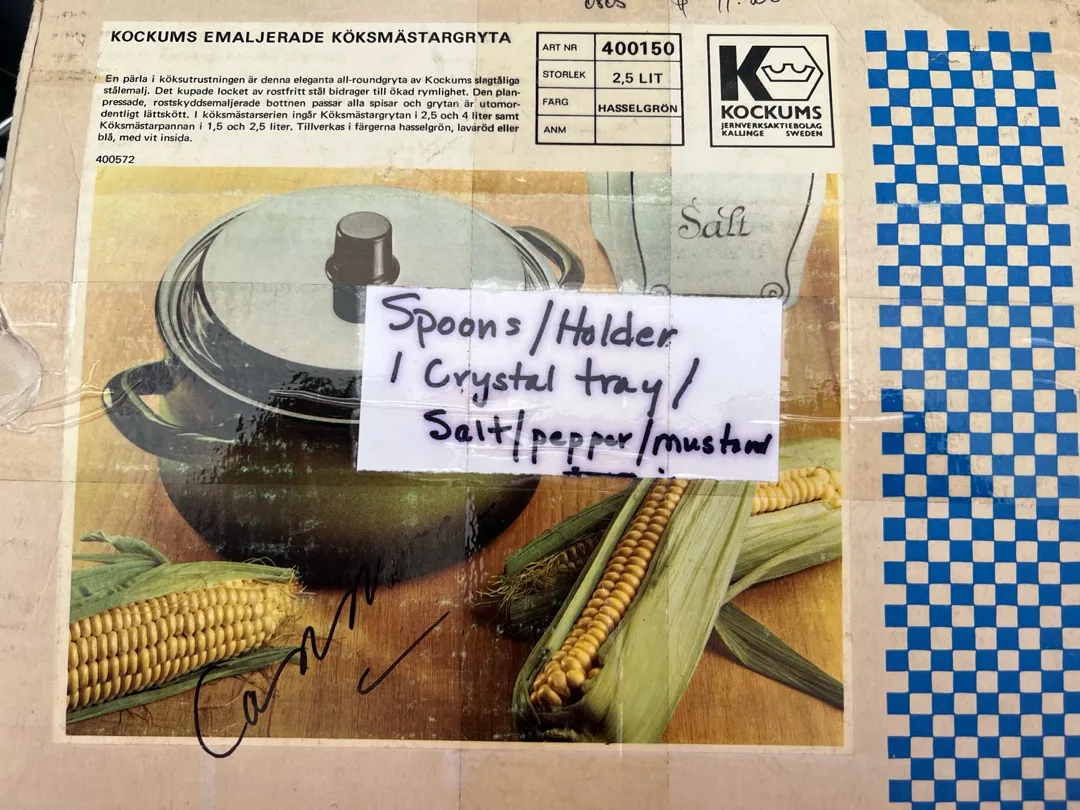 KOCKUMS EMALJERADE KÖKSMÄSTARGRYTA
En pärla i köksutrustningen är denna eleganta all-roundgryta av Kockums slagtåliga
stålemalj. Det kupade locket av rostfritt stål bidrager till ökad rymlighet. Den plan-
pressade, rostskyddsemaljerade bottnen passar alla spisar och grytan är utomor-
dentligt lättskött. I köksmästarserien ingår Köksmästargrytan i 2,5 och 4 liter samt
Köksmästarpannan i 1,5 och 2,5 liter. Tillverkas i färgerna hasselgrön, lavaröd eller
blå, med vit insida.
400572
ART NR 400150
STORLEK 2,5 LIT
FÄRG HASSELGRÖN
ANM
K
KOCKUMS
JERNVERKSAKTIEBOLAG
KALLINGE SWEDEN
Salt
Spoons/Holder
1 Crystal tray/
Salt/pepper/mustard